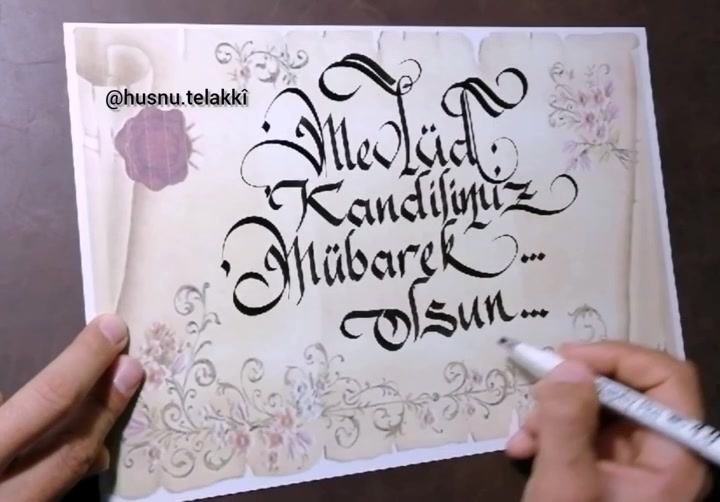 @husnu.telakkî
Mevlüd
Kandilimiz
Mübarek...
olsun...